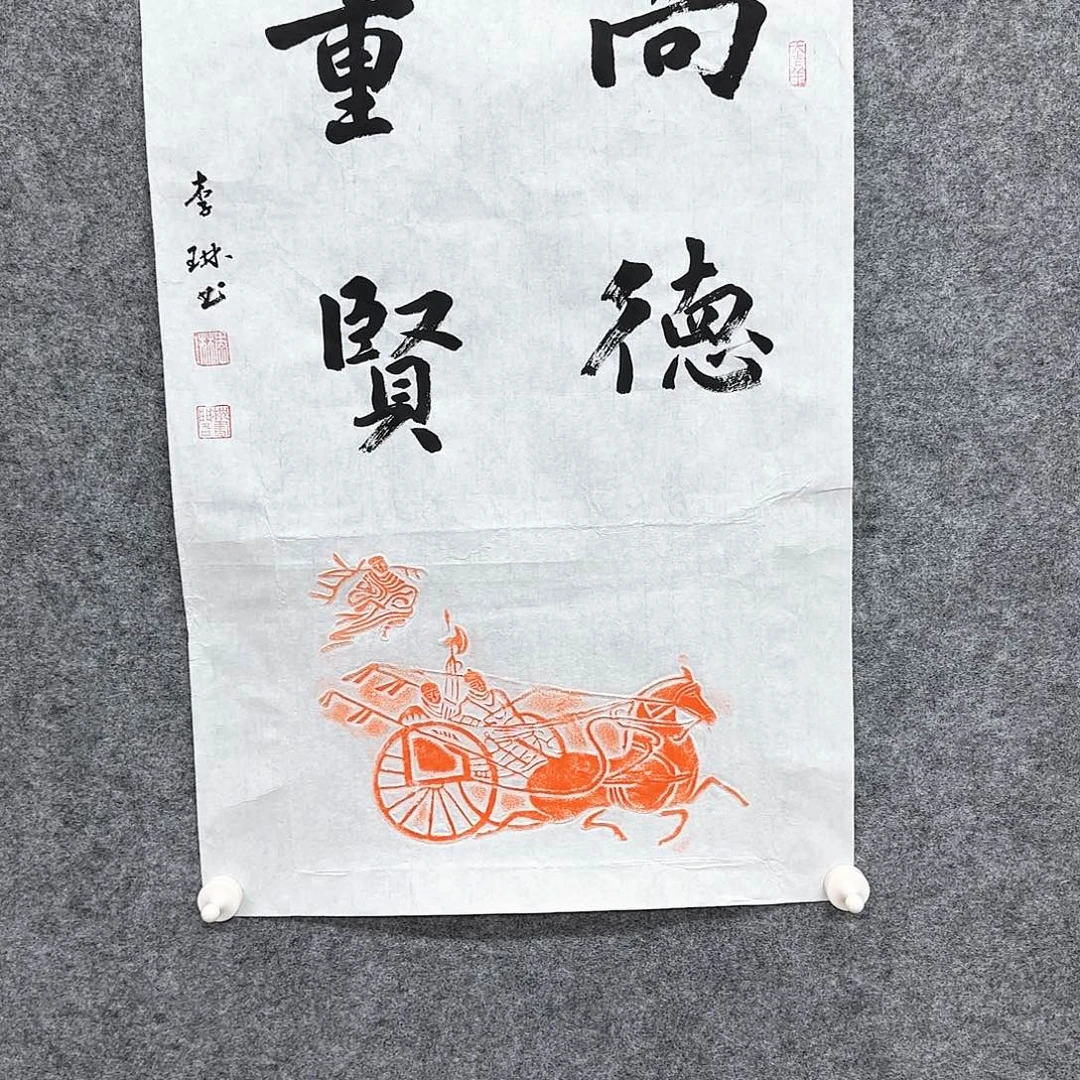 尚德
重賢
李琳书